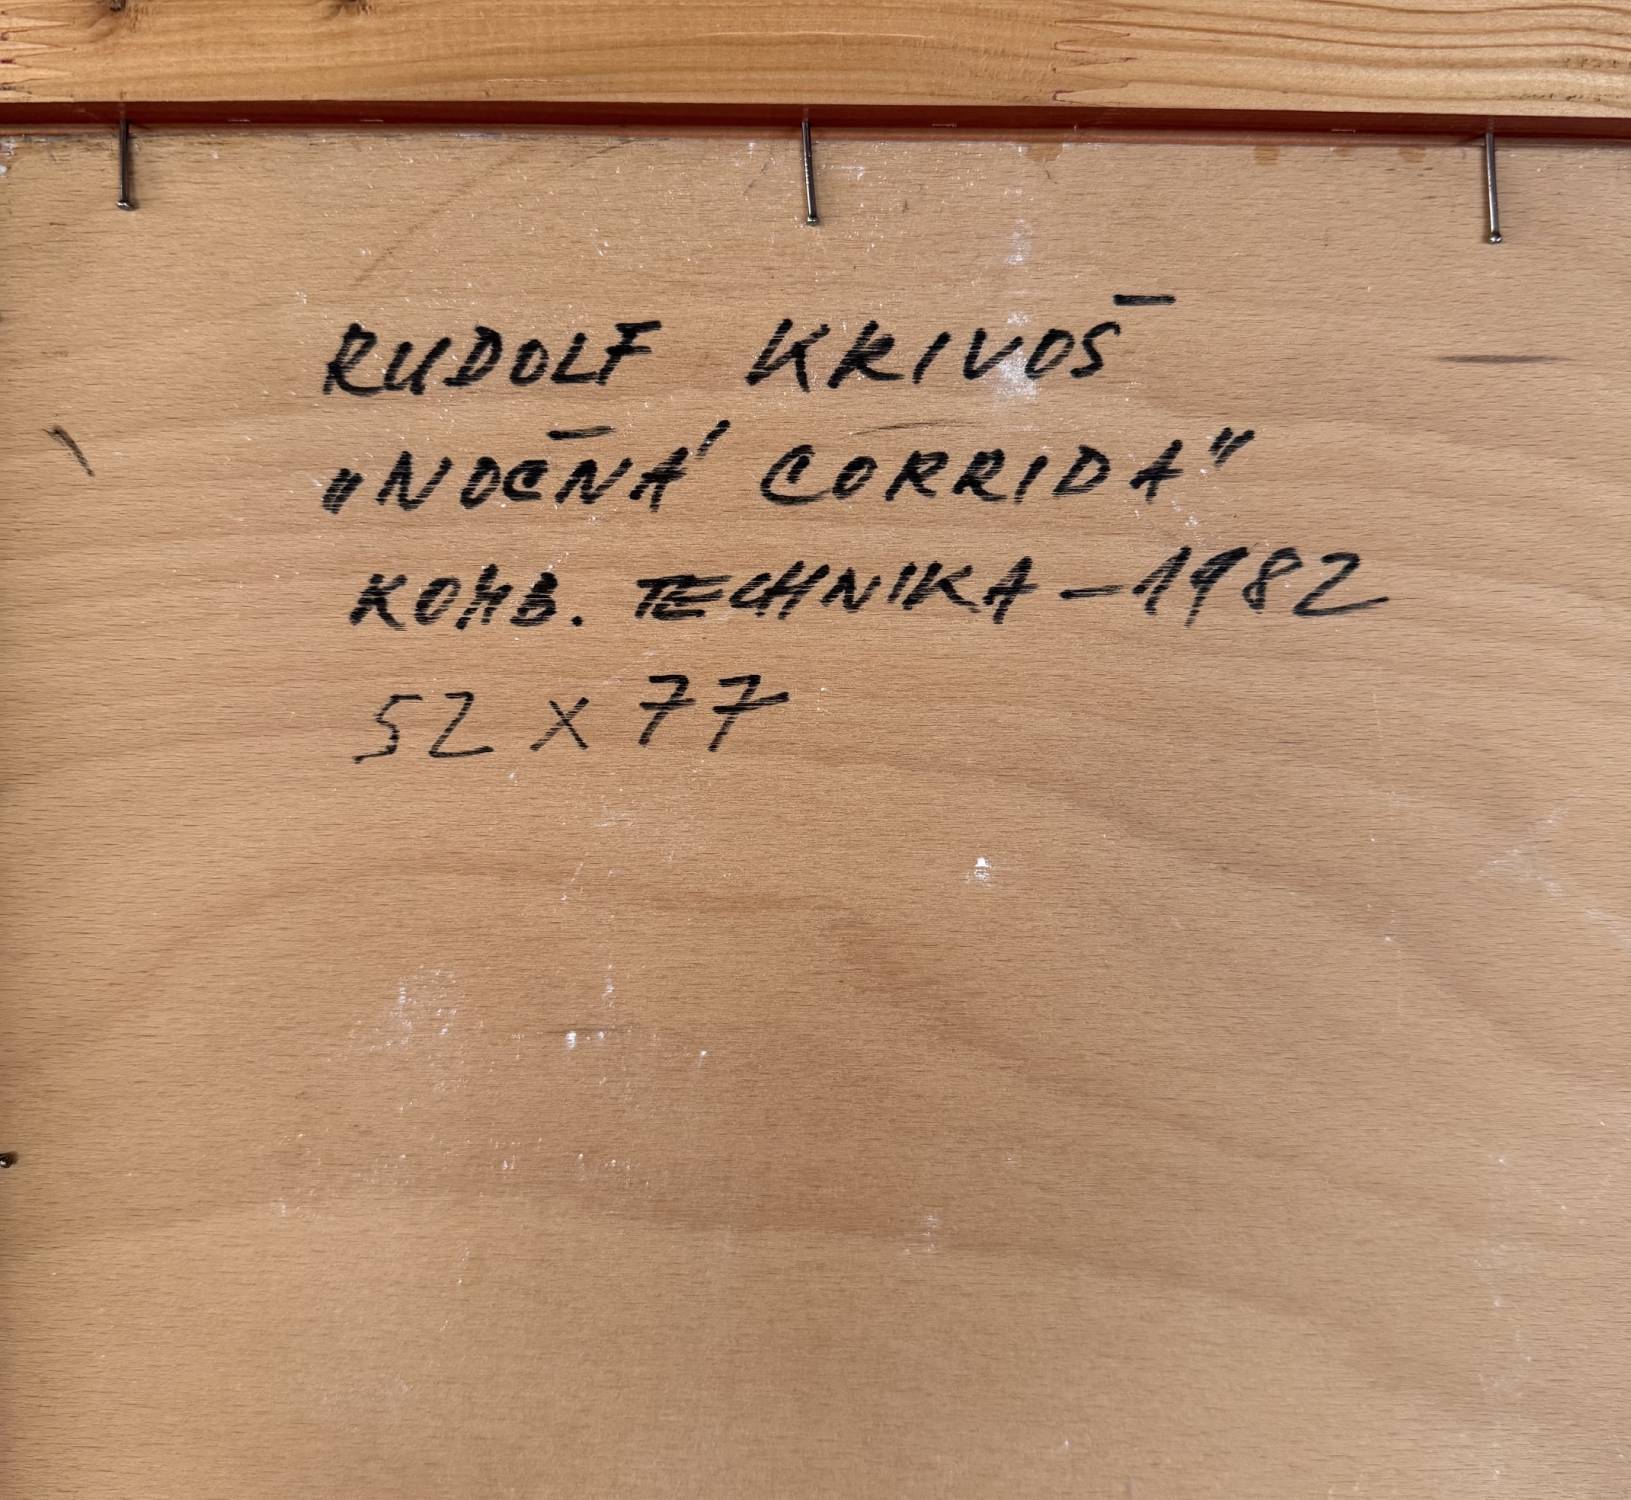 RUDOLF KRIVOŠ
„NOČNÁ CORRIDA"
KOMB. TECHNIKA – 1982
52 x 77